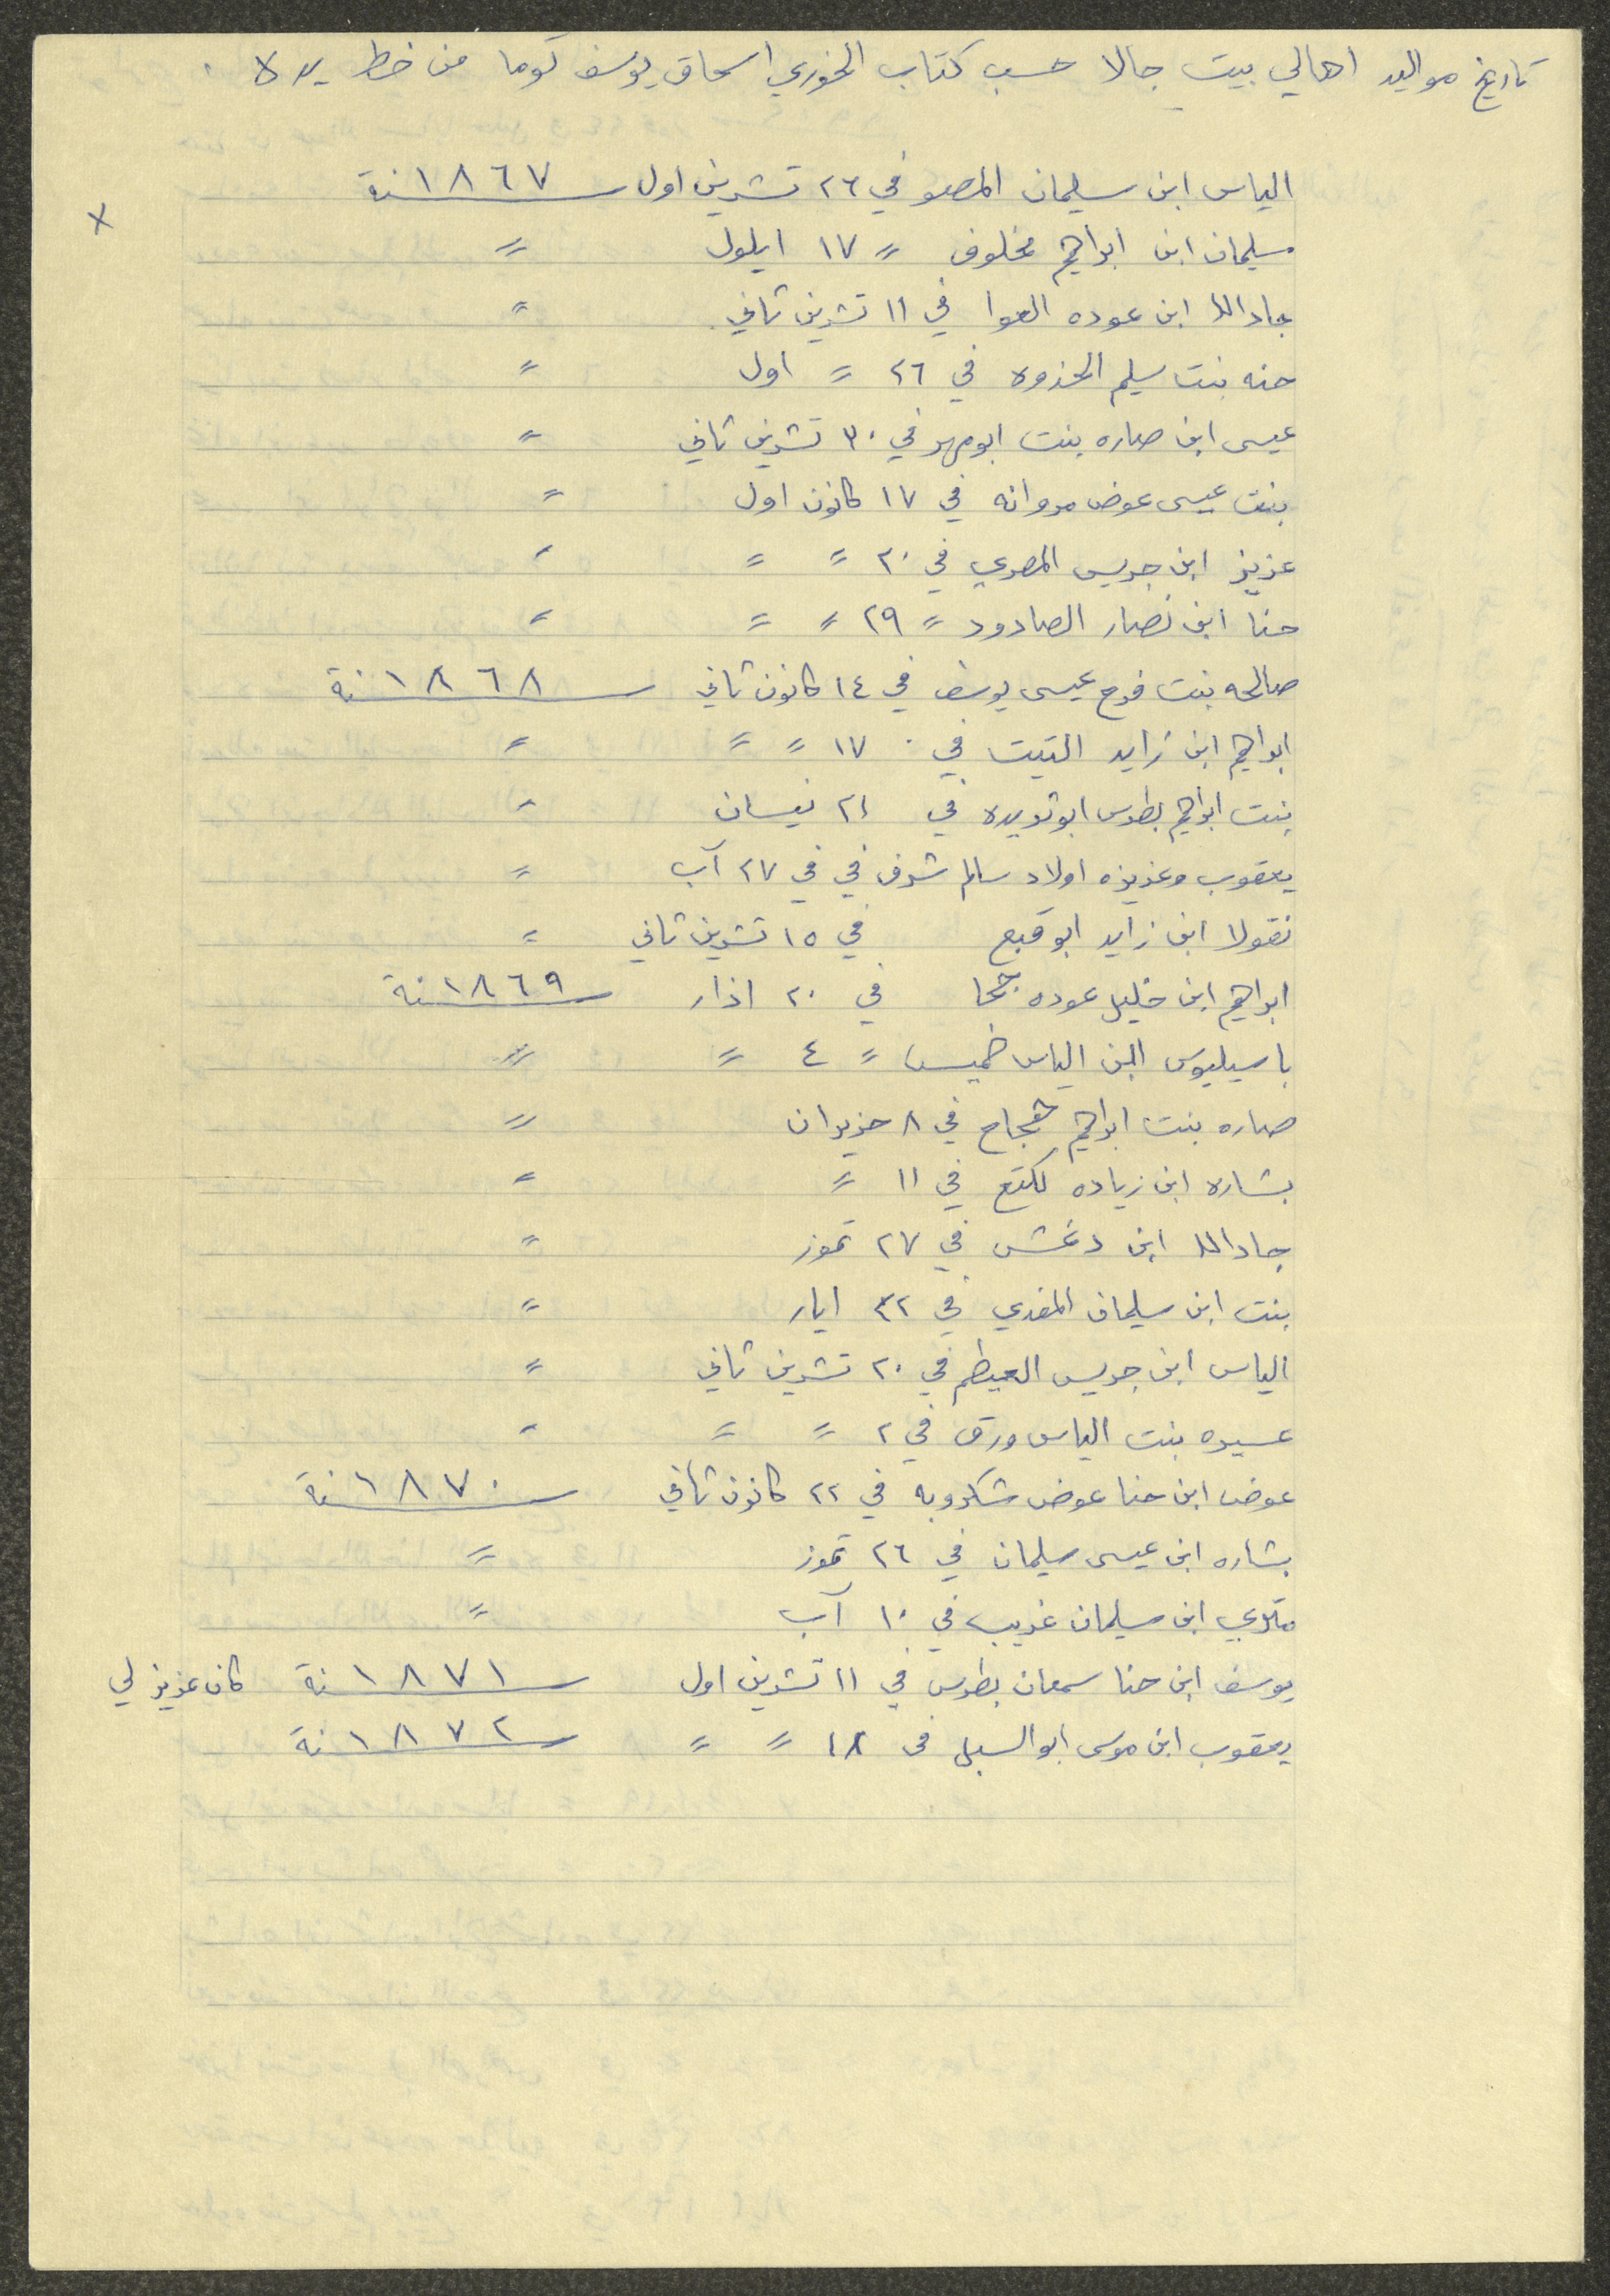 تاريخ مواليد اهالي بيت جالا حسب كتاب الخوري اسحاق يوسف توما من خط يده
الياس ابن سليمان المصو في ٢٦ تشرين اول سنة ١٨٦٧
سليمان ابن ابراهيم مخلوف " ١٧ ايلول "
جادالله ابن عوده العوا في ١١ تشرين ثاني "
حنه بنت سليم الحذوه في ٢٦ " اول "
عيسى ابن صاره بنت ابومهر في ٣٠ تشرين ثاني "
بنت عيسى عوض مروانه في ١٧ كانون اول "
عزيز ابن جريس المصري في ٢٠ " " "
حنا ابن نصار الصادود " ٢٩ " " "
صالحه بنت فرح عيسى يوسف في ١٤ كانون ثاني سنة ١٨٦٨
ابراهيم ابن زايد التيت في ١٧ " " "
بنت ابراهيم بطرس ابوتويره في ٢١ نيسان "
يعقوب وعزيزه اولاد سالم شرف في في ٢٧ آب "
نقولا ابن زايد ابوقبع في ١٥ تشرين ثاني "
ابراهيم ابن خليل عوده جحا في ٢٠ اذار سنة ١٨٦٩
باسيليوس ابن الياس خميس " ٤ " "
صاره بنت ابراهيم حجاج في ٨ حزيران "
بشاره ابن زياده لكتع في ١١ " "
جادالله ابن دغش في ٢٧ تموز "
بنت ابن سليمان المغدي في ٢٢ ايار "
الياس ابن جريس العيظم في ٢٠ تشرين ثاني "
عسيده بنت الياس ورق في ٢ " " "
عوض ابن حنا عوض شكروبه في ٢٢ كانون ثاني سنة ١٨٧٠
بشاره ابن عيسى سليمان في ٢٦ تموز "
متري ابن سليمان غريب في ١٠ آب "
يوسف ابن حنا سمعان بطرس في ١١ تشرين اول سنة ١٨٧١ كان عزيز لي
يعقوب ابن موسى ابوالسبل في ١٨ " " سنة ١٨٧٢